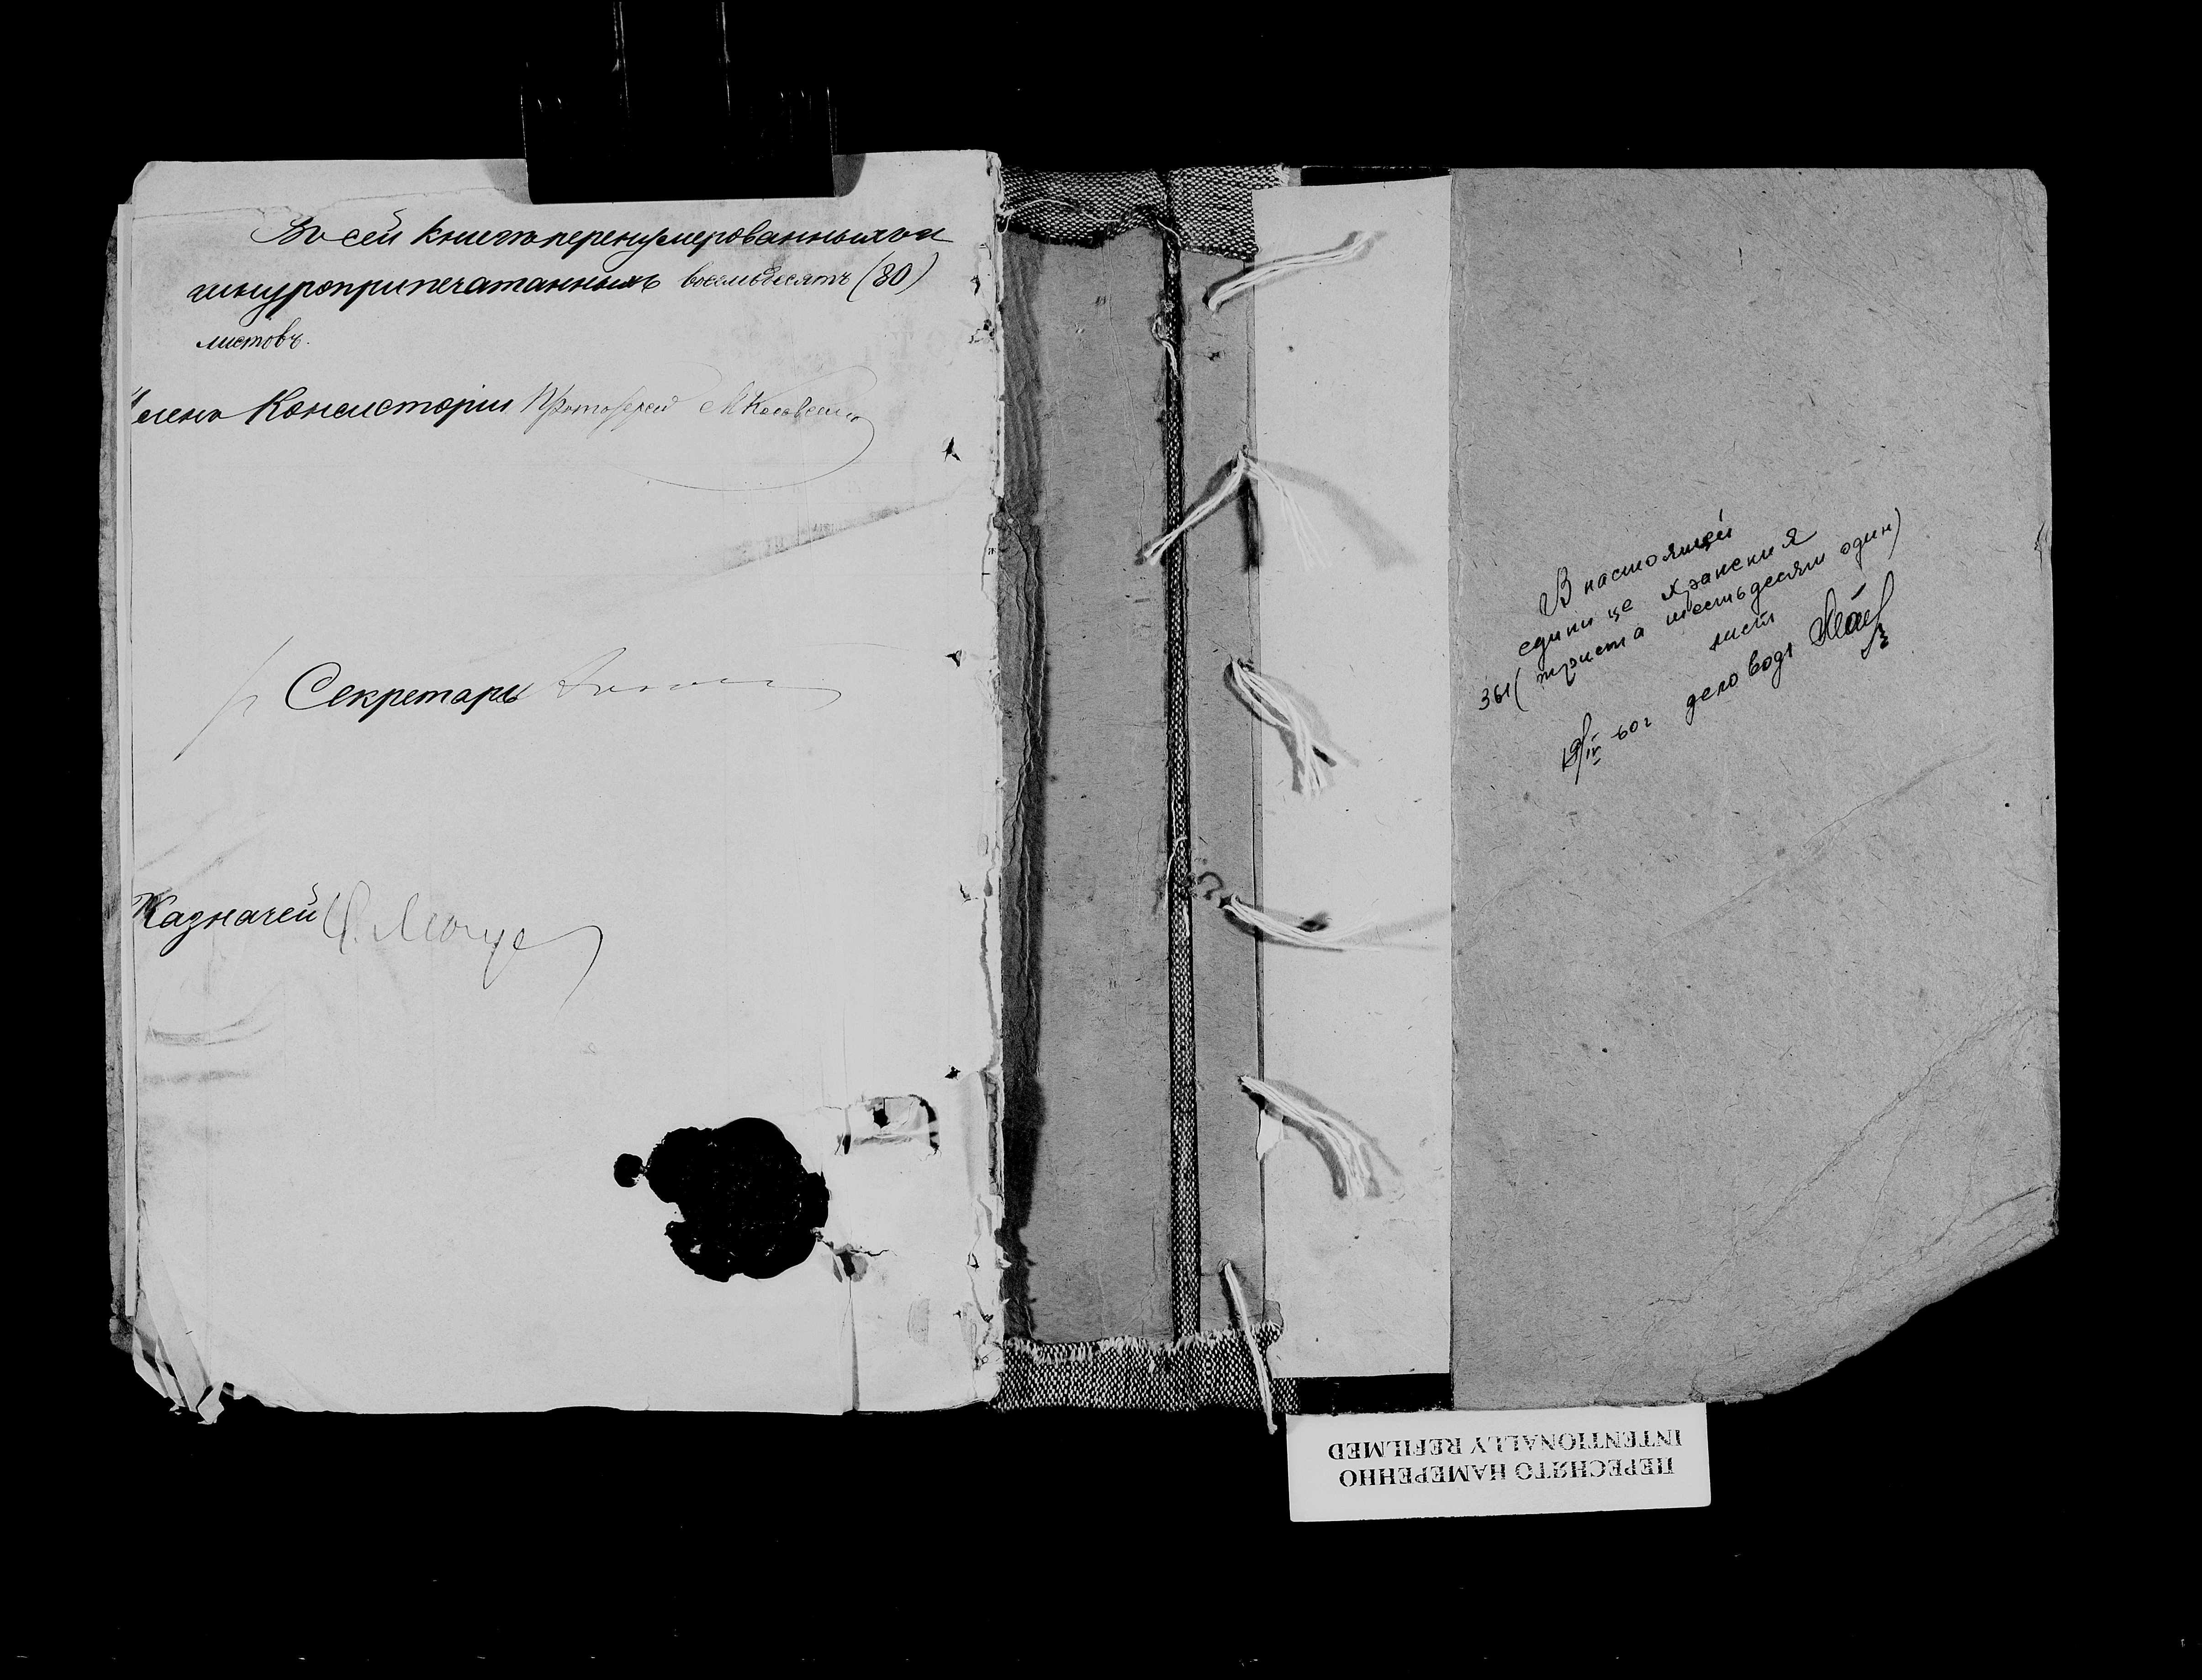 Во сей книге перенумерованныхъ и
шнуроприпечатанныхъ восемьдесятъ (80)
листовъ.
Членъ Консисторіи Протоіерей
Секретарь
Казначей
В настоящей
единице хранения
361 (триста шестьдесят один)
лист
19/IV 60г деловод
ПЕРЕСНЯТО НАМЕРЕННО
INTENTIONALLY REFILMED